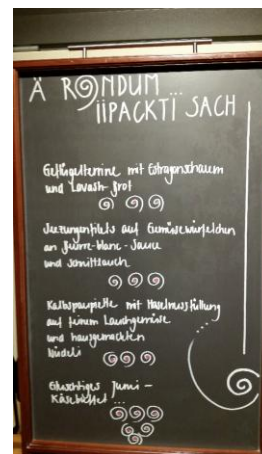 Ä RONDUM ...
IIPACKTI SACH
Geflügelterrine mit Estragonschaum
und Lavash-Brot
Seezungenfilets auf Gemüsewürfelchen
an Beurre-blanc-Sauce
und Schnittlauch
Kalbspaupiette mit Haselnussfüllung
auf feinem Lauchgemüse
und hausgemachten
Nüdeli
Gluschtiges Juni-
Käsebuffet ...